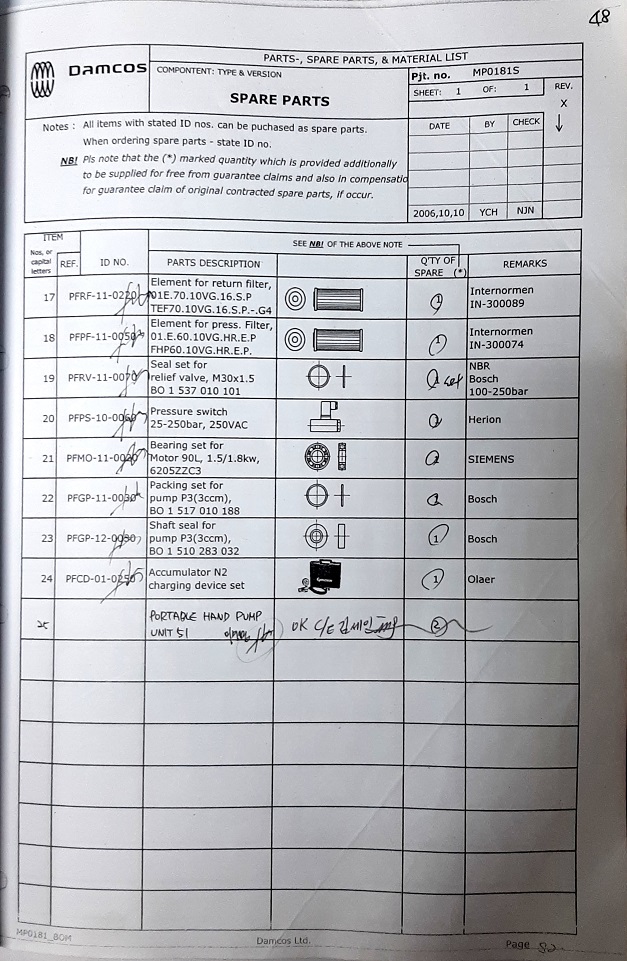 48
Damcos
PARTS-, SPARE PARTS, & MATERIAL LIST
COMPONTENT: TYPE & VERSION
SPARE PARTS
Pjt. no. MP0181S
SHEET: 1 OF: 1
REV.
X
DATE BY CHECK
2006,10,10 YCH NJN
Notes : All items with stated ID nos. can be puchased as spare parts.
When ordering spare parts - state ID no.
NB! Pls note that the (*) marked quantity which is provided additionally
to be supplied for free from guarantee claims and also in compensatio
for guarantee claim of original contracted spare parts, if occur.
ITEM
Nos, or capital letters
REF.
ID NO.
PARTS DESCRIPTION
SEE NB! OF THE ABOVE NOTE
Q'TY OF SPARE (*)
REMARKS
17 PFRF-11-0220 Element for return filter, 1 Internormen
01E.70.10VG.16.S.P IN-300089
TEF70.10VG.16.S.P.-.G4
18 PFPF-11-0050 Element for press. Filter, 1 Internormen
01.E.60.10VG.HR.E.P. IN-300074
FHP60.10VG.HR.E.P.
19 PFRV-11-0070 Seal set for set NBR
relief valve, M30x1.5 Bosch
BO 1 537 010 101 100-250bar
20 PFPS-10-0060 Pressure switch Herion
25-250bar, 250VAC
21 PFMO-11-0020 Bearing set for SIEMENS
Motor 90L, 1.5/1.8kw,
6205ZZC3
22 PFGP-11-0030 Packing set for Bosch
pump P3(3ccm),
BO 1 517 010 188
23 PFGP-12-0030 Shaft seal for 1 Bosch
pump P3(3ccm),
BO 1 510 283 032
24 PFCD-01-0250 Accumulator N2 1 Olaer
charging device set
25 PORTABLE HAND PUMP OK C/E 2
UNIT 51
MP0181_BOM
Damcos Ltd.
Page 82